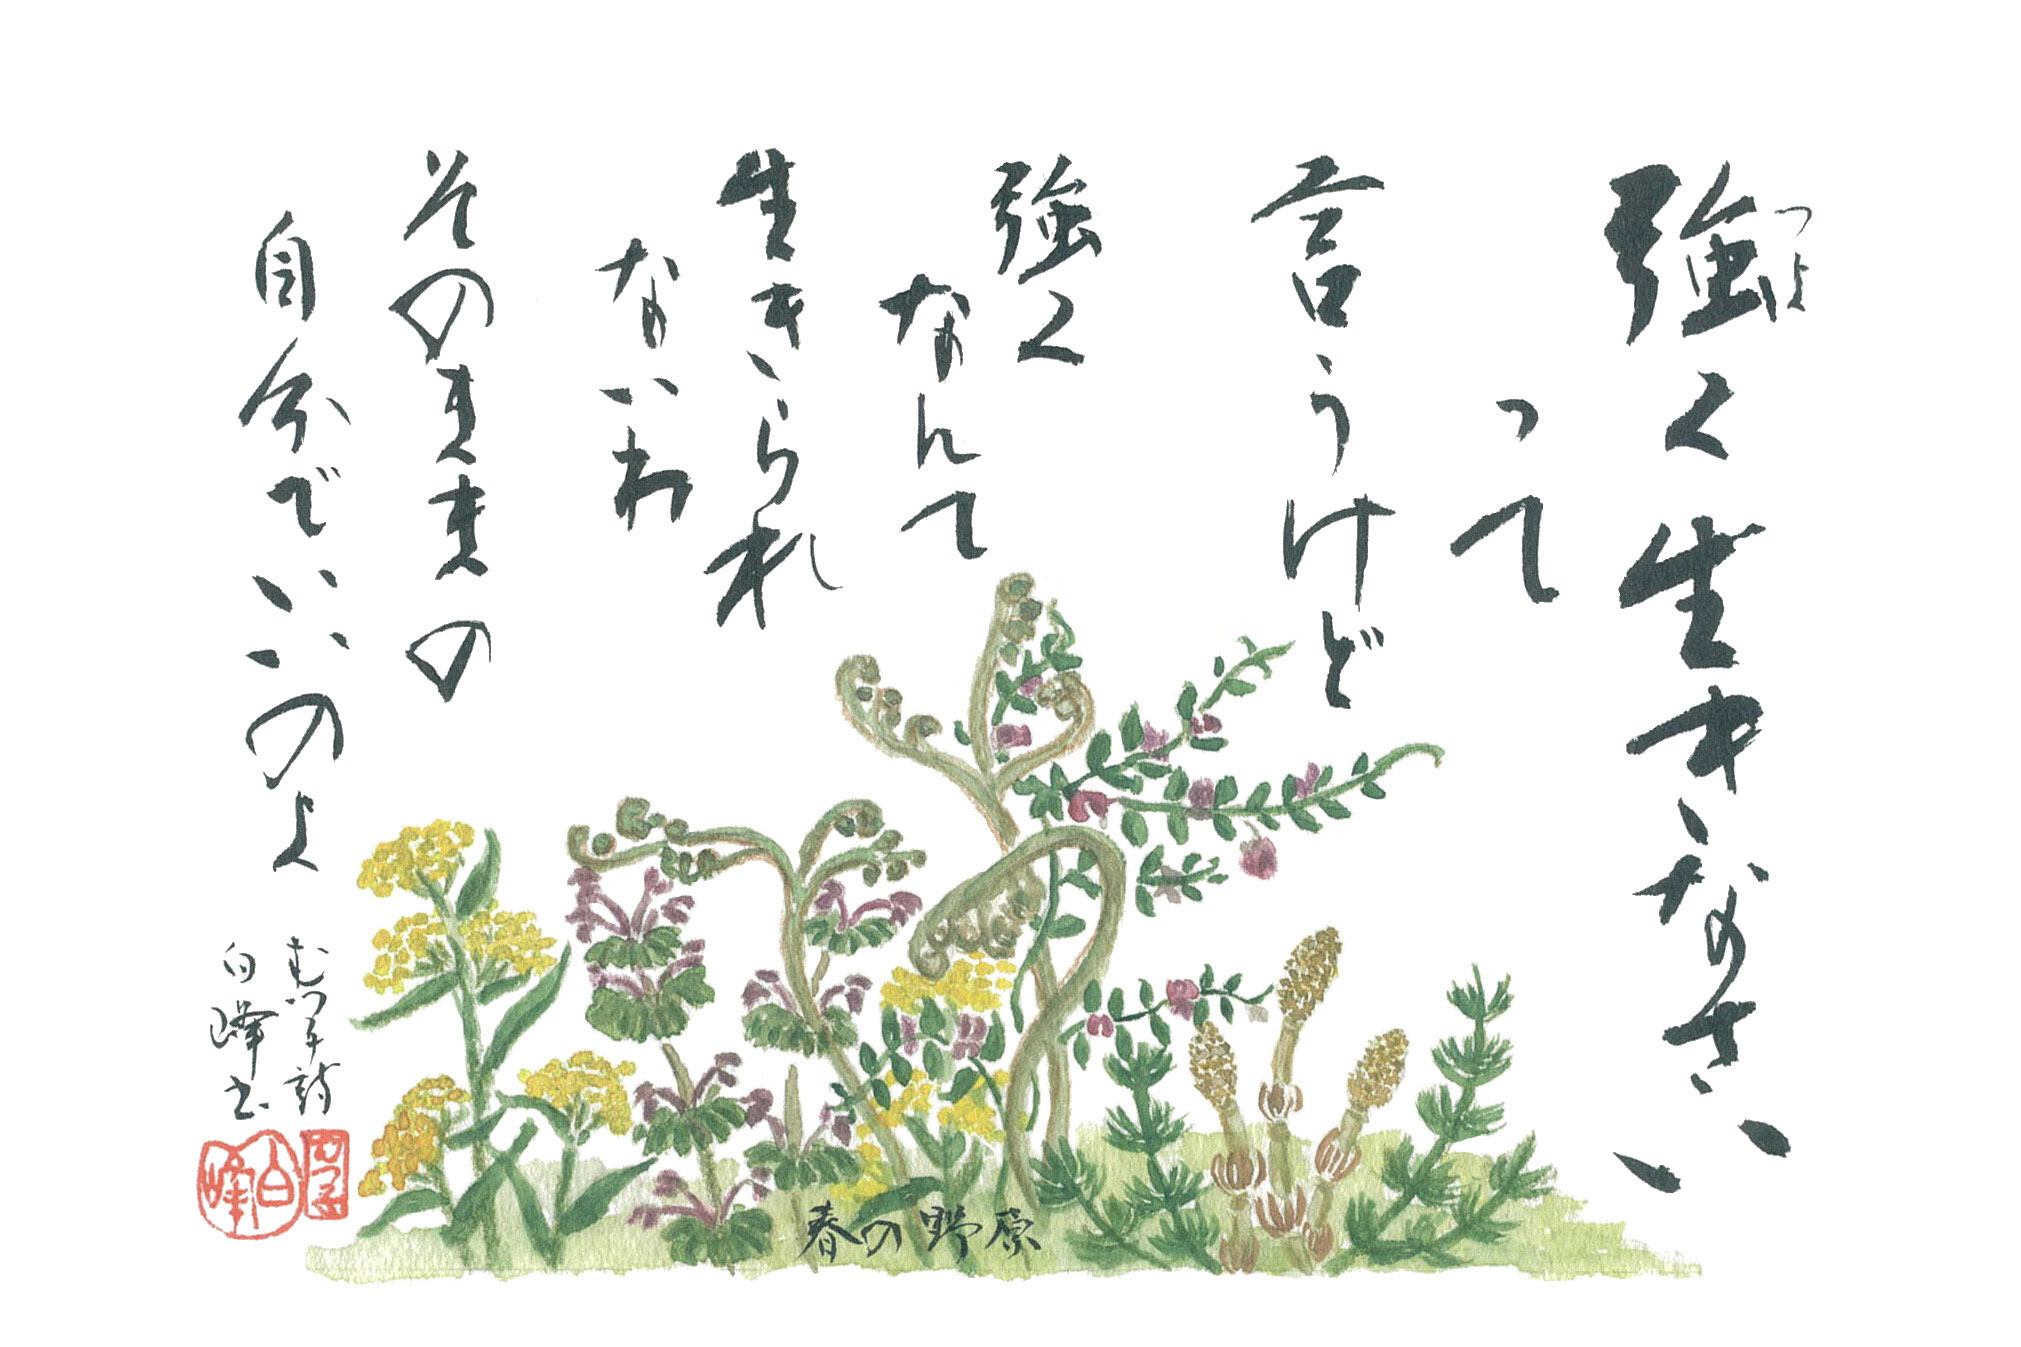 強く生きなさい
つよ
って
言うけど
強く
なんて
生きられ
ないわ
そのままの
自分でいいのよ
むつ子詩
白峰書
白峰
春の野原